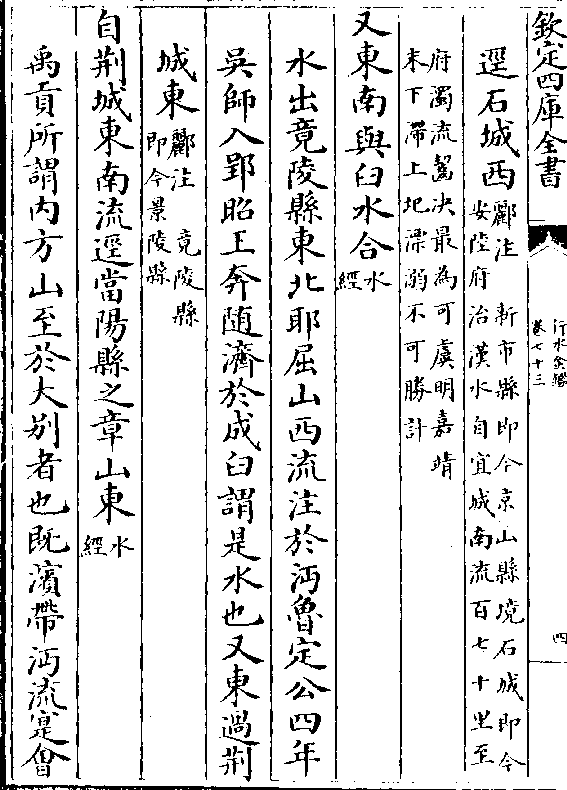 欽定四庫全書
行水金鑑
卷七十三
四
逕石城西酈注 新市縣即今京山縣境石城即今
安陸府治漢水自宜城南流百七十里至
府濁流駕決最為可虞明嘉靖
末下滯上圯漂溺不可勝計
又東南與臼水合水經
水出竟陵縣東北耶屈山西流注於沔魯定公四年
吳師入郢昭王奔随濟於成臼謂是水也又東過荆
城東酈注 竟陵縣
即今景陵縣
自荆城東南流逕當陽縣之章山東水經
禹貢所謂内方山至於大别者也既濱帶沔流寔㑹